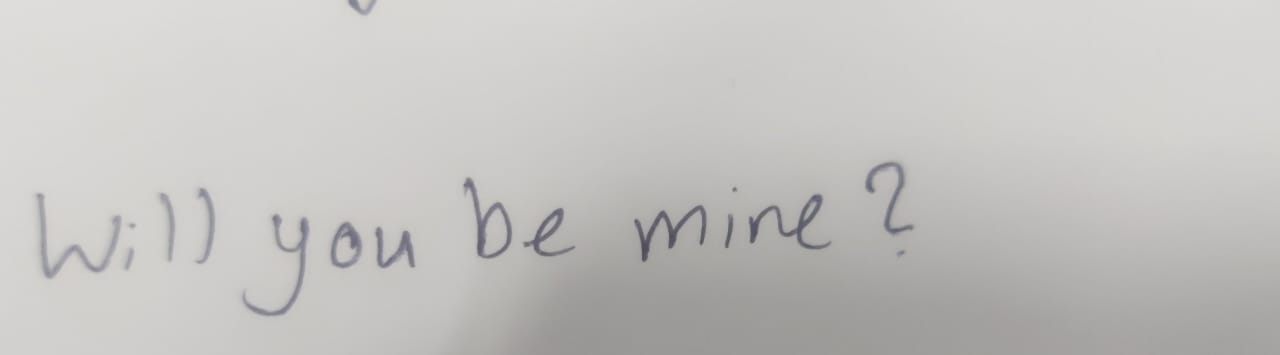 Will you be mine?